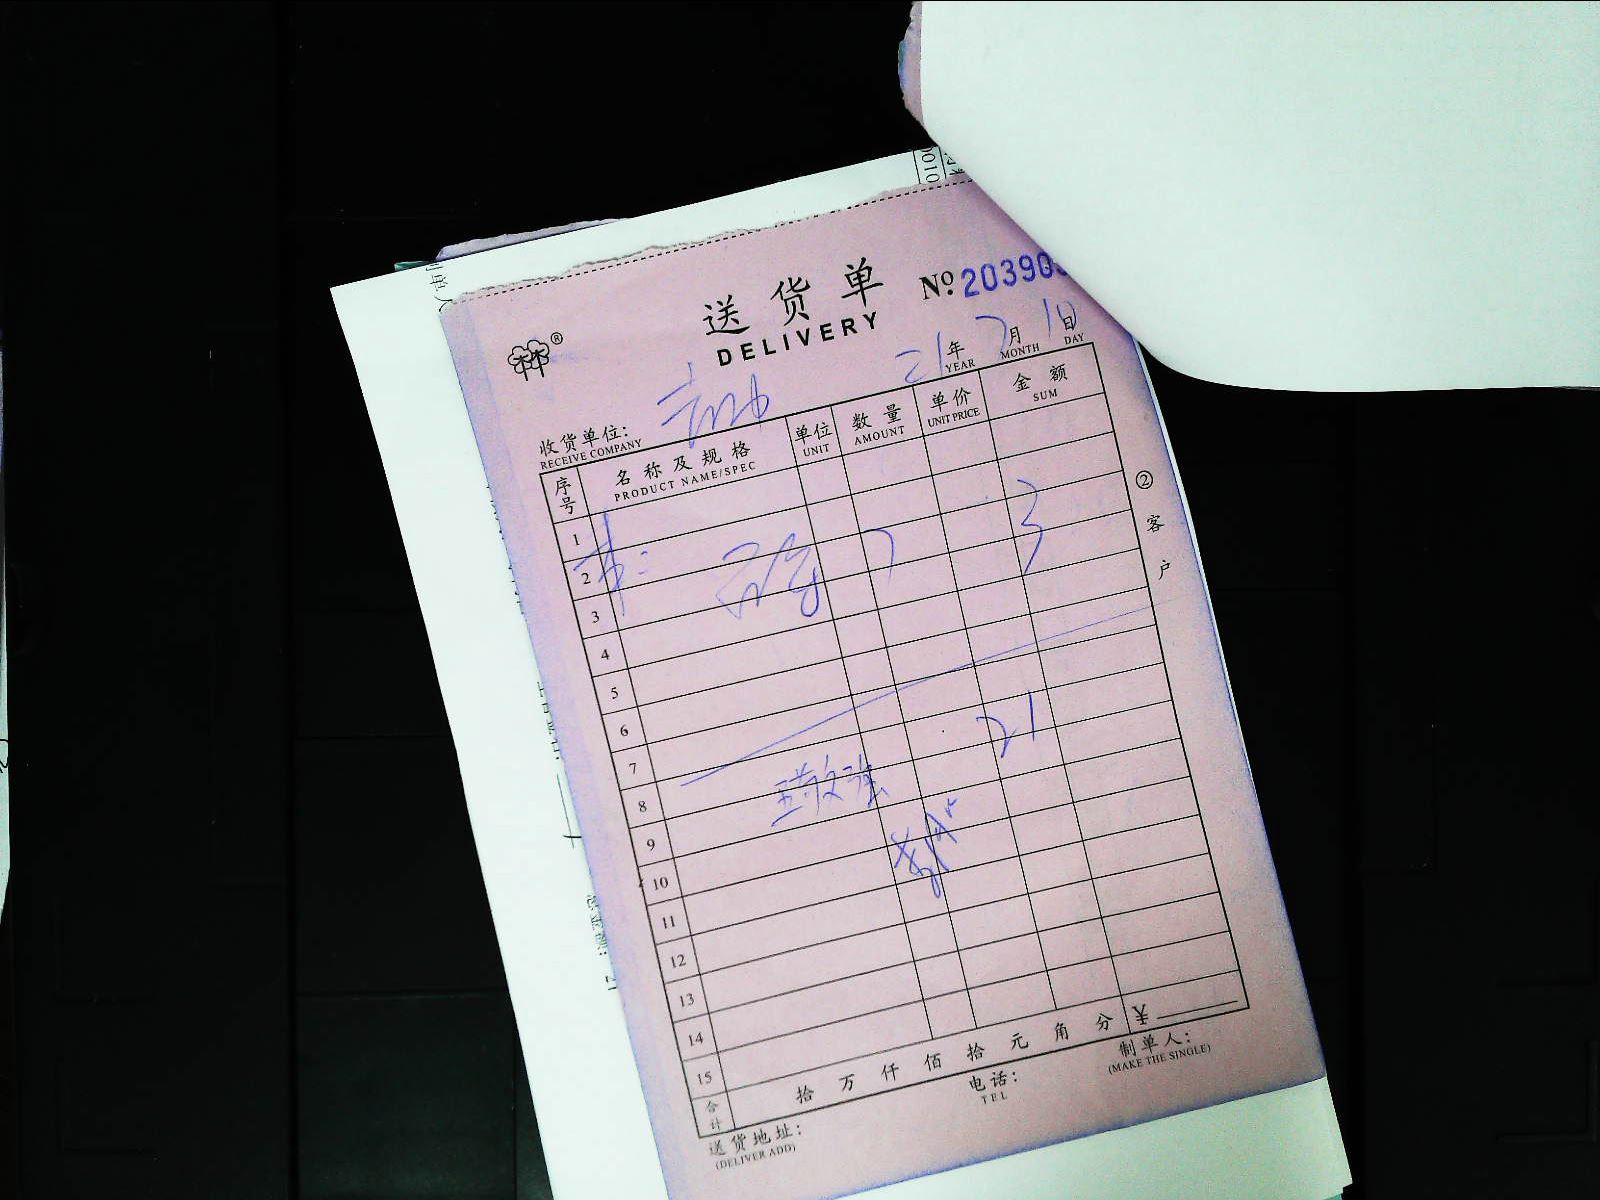 送货单
DELIVERY
№ 20390
21年 7月 10日
YEAR MONTH DAY
收货单位:
RECEIVE COMPANY
序号 名称及规格 单位 数量 单价 金额
PRODUCT NAME/SPEC UNIT AMOUNT UNIT PRICE SUM
1
2
7 3
3
4
5
6
7
21
8
9
10
11
12
13
14
15
合计 拾 万 仟 佰 拾 元 角 分 ¥
送货地址: 电话: 制单人:
(DELIVER ADD) TEL (MAKE THE SINGLE)
②客户